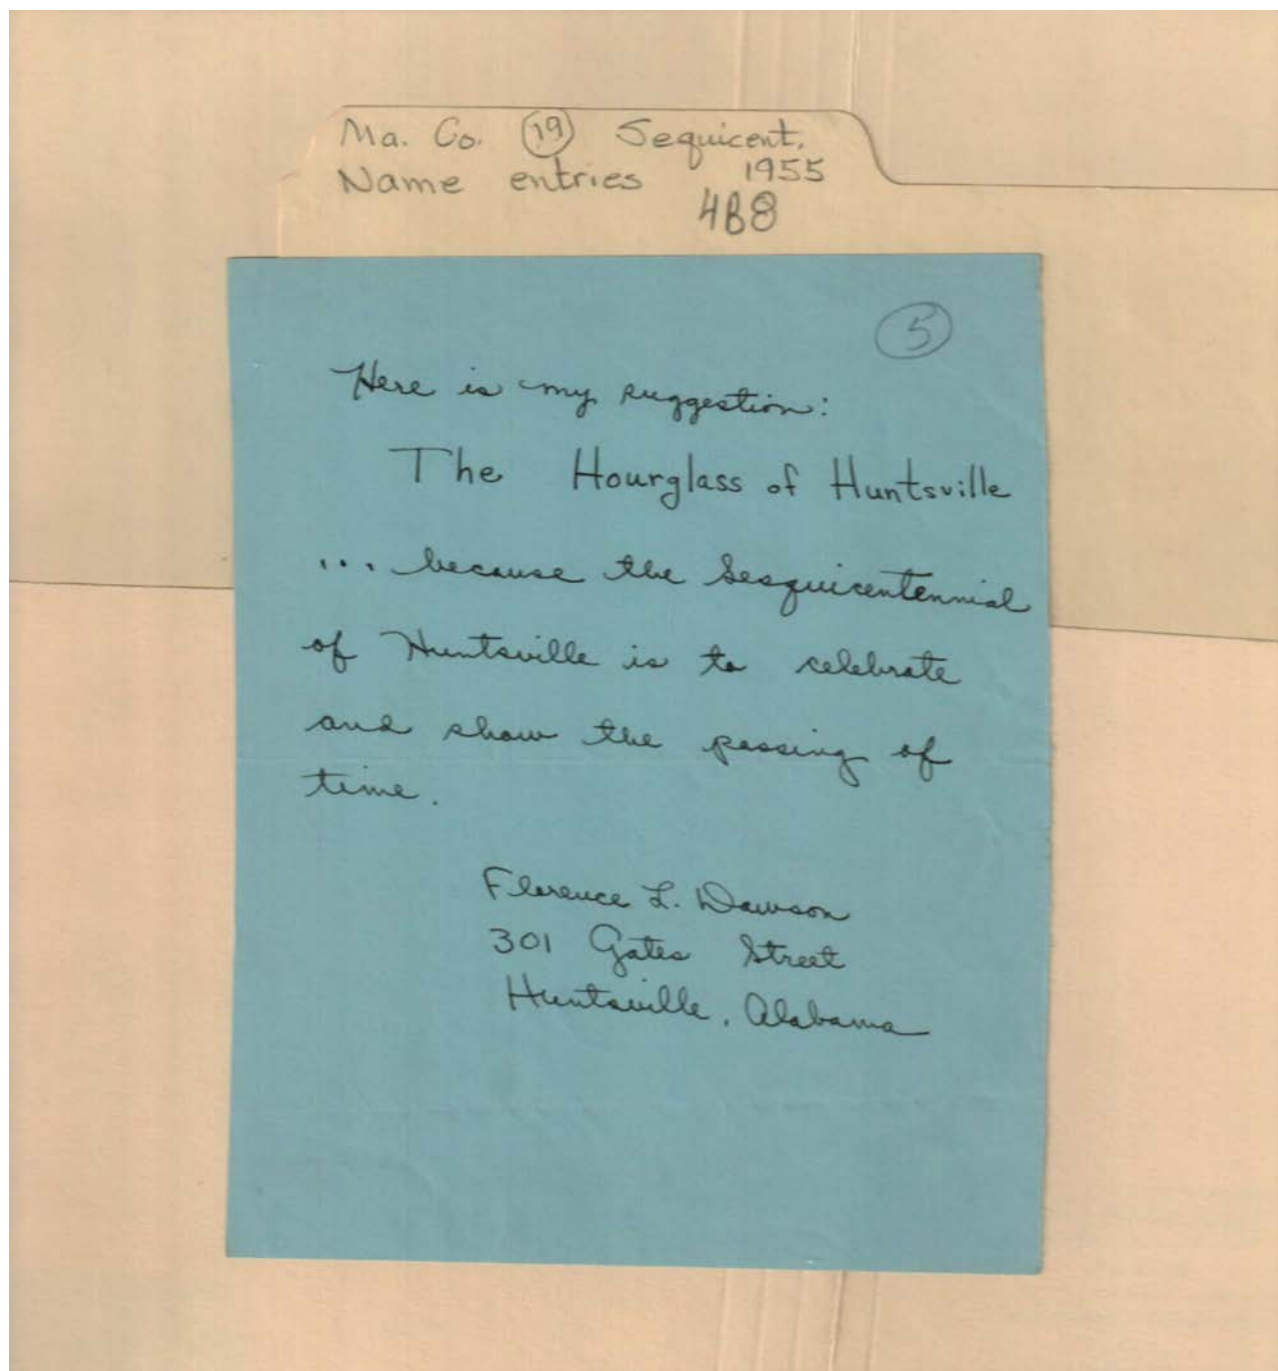 Ma. Co. 19 Sequicent.
Name entries 1955
4B8
5
Here is my suggestion:
The Hourglass of Huntsville
... because the Sesquicentennial
of Huntsville is to celebrate
and show the passing of
time.
Florence L. Dawson
301 Gates Street
Huntsville, Alabama